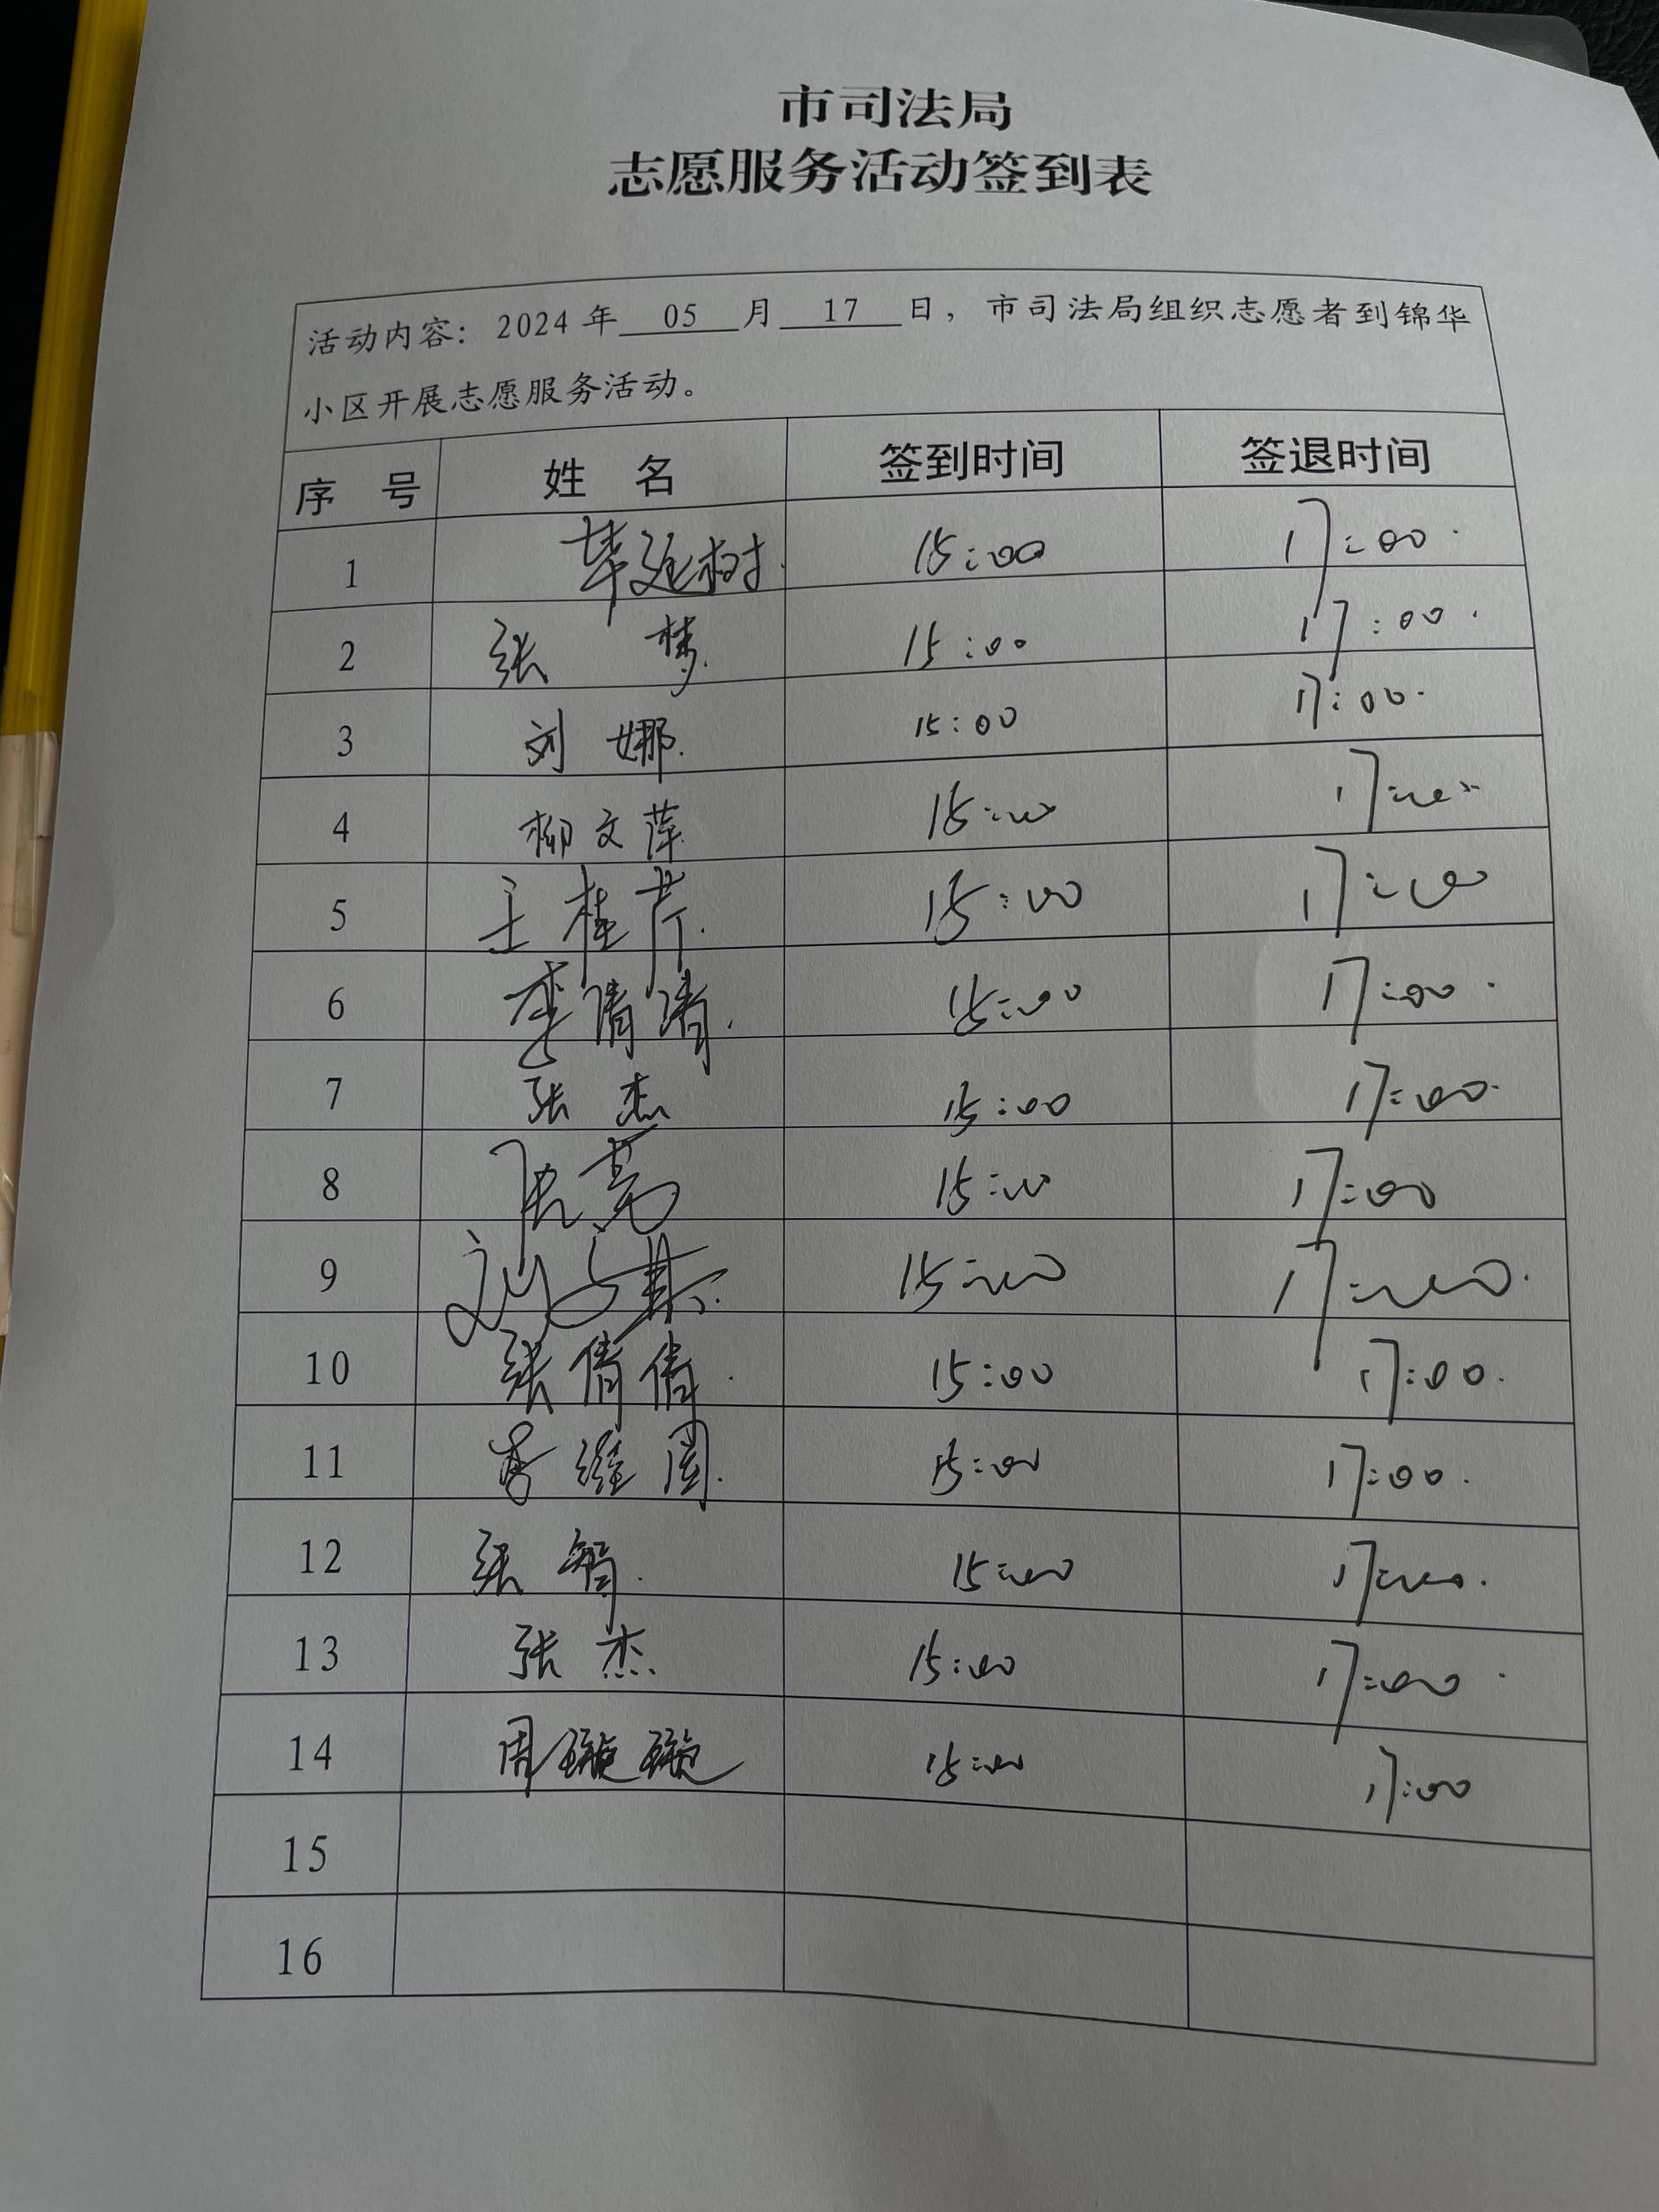 市司法局
志愿服务活动签到表
活动内容：2024年 05 月 17 日，市司法局组织志愿者到锦华
小区开展志愿服务活动。
序 号 姓 名 签到时间 签退时间
1 毕延树 15:00 17:00
2 张 梦 15:00 17:00
3 刘 娜 15:00 17:00
4 柳文萍 15:00 17:00
5 王桂芹 15:00 17:00
6 李倩倩 15:00 17:00
7 张 杰 15:00 17:00
8 张亮 15:00 17:00
9 刘 15:00 17:00
10 张倩倩 15:00 17:00
11 维国 15:00 17:00
12 张智 15:00 17:00
13 张杰 15:00 17:00
14 周璇璇 15:00 17:00
15
16